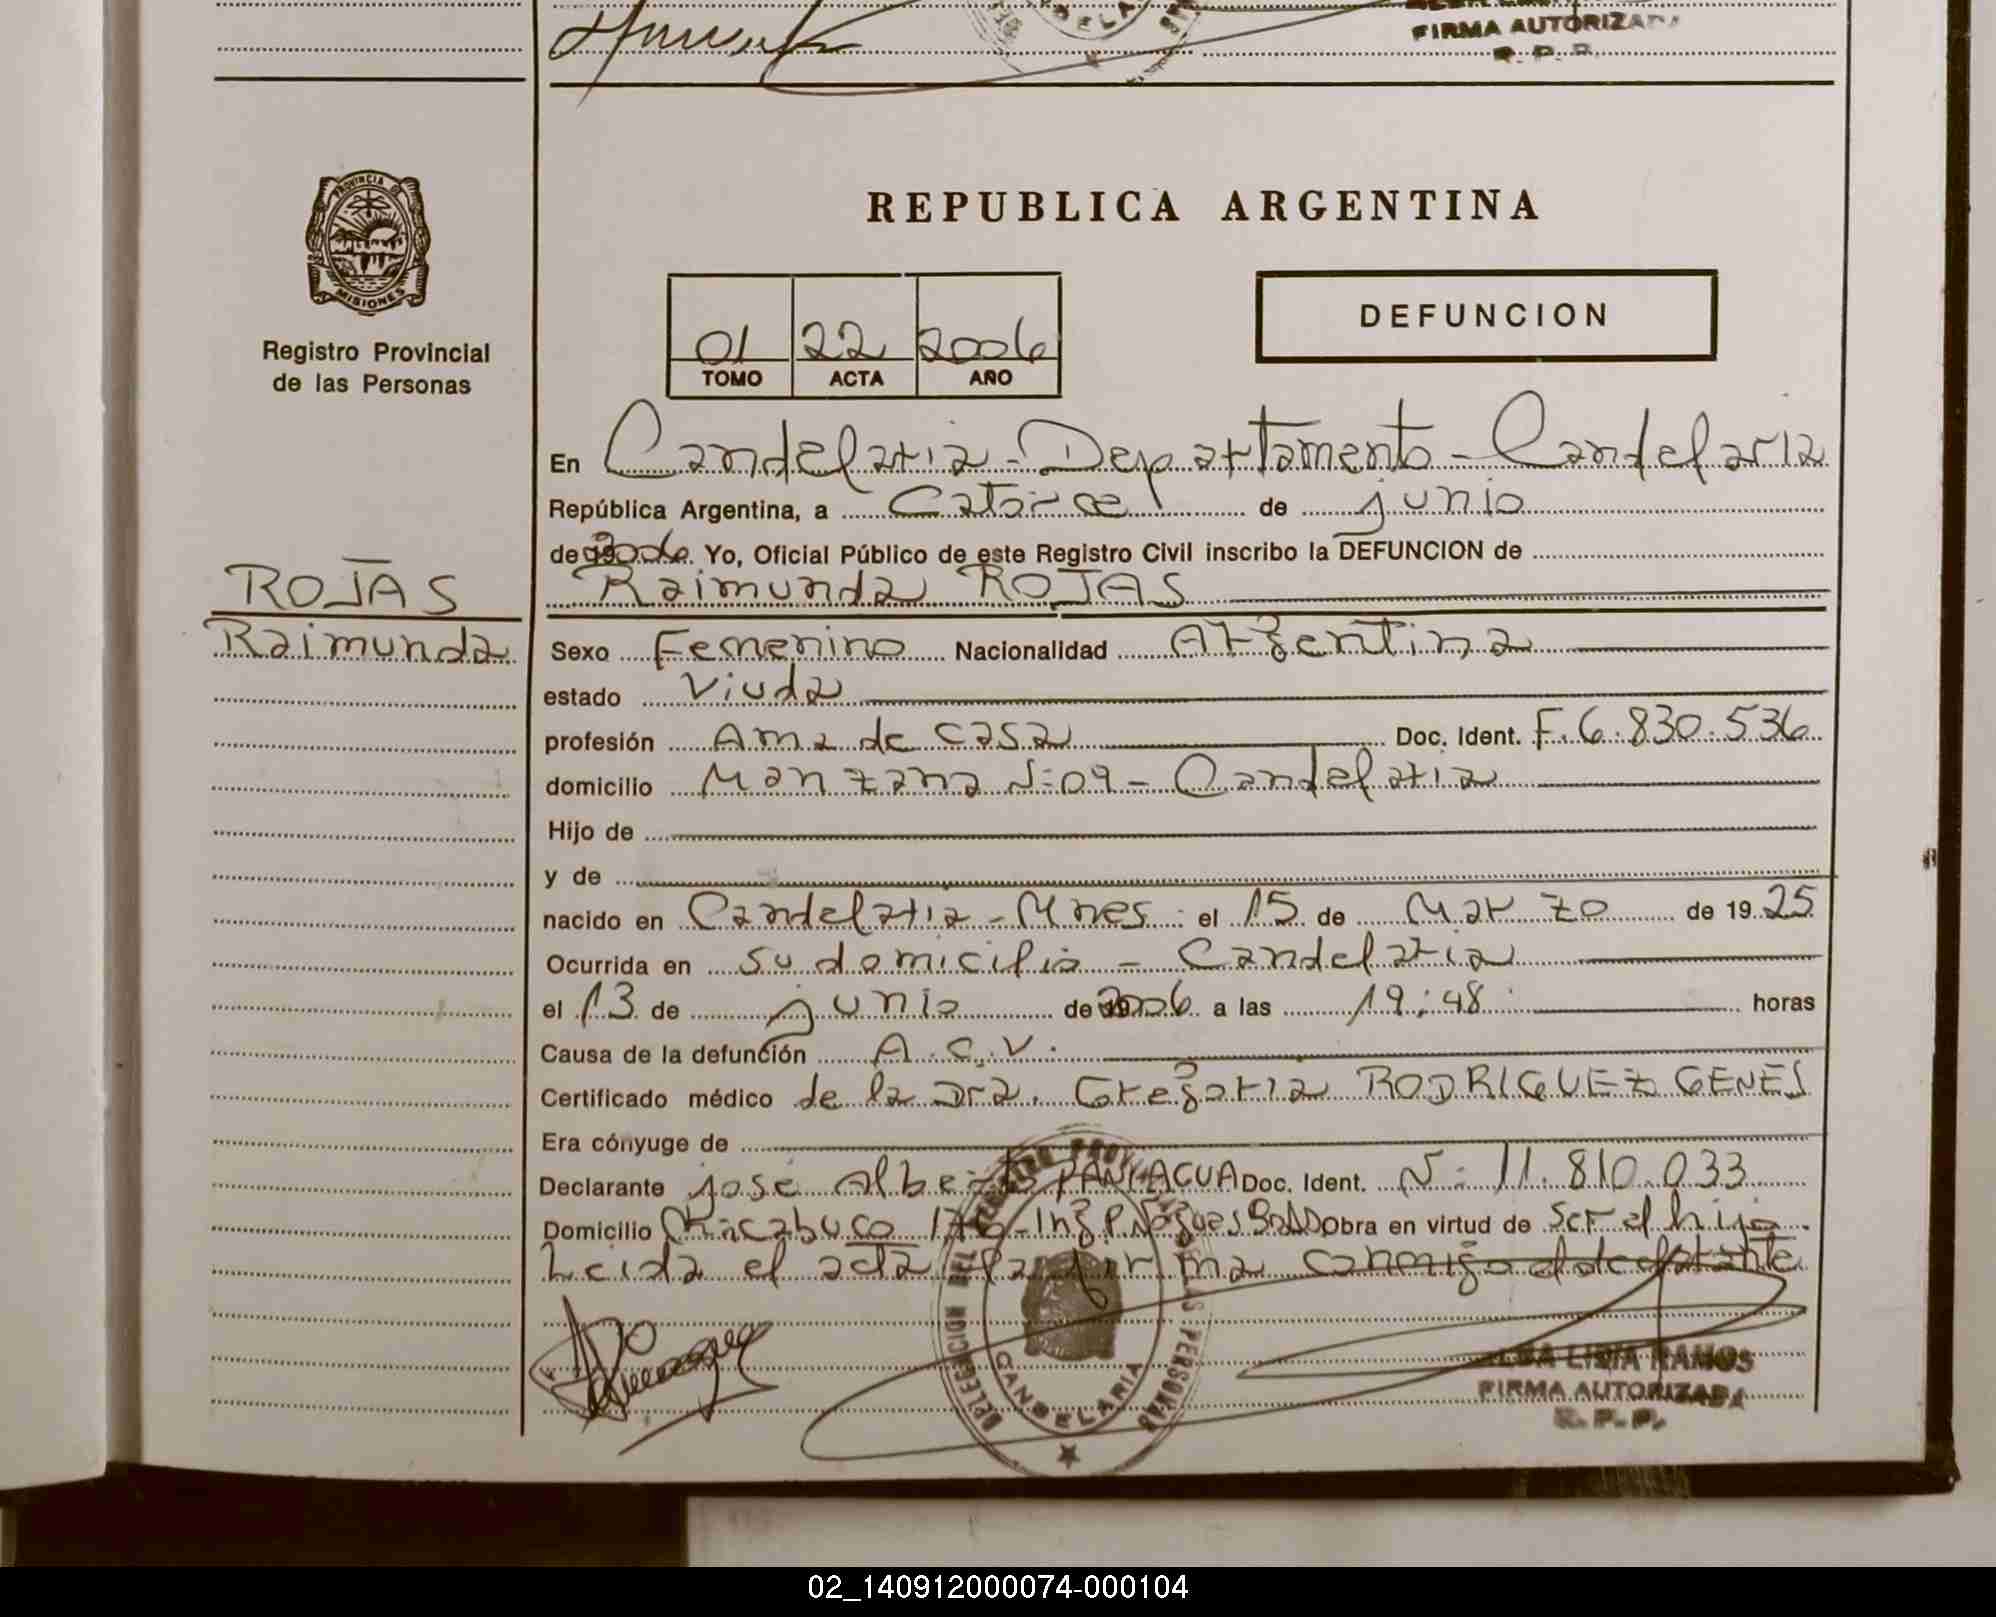 CANDELARIA
FIRMA AUTORIZADA
R. P. P.
PROVINCIA DE
MISIONES
Registro Provincial
de las Personas
REPUBLICA ARGENTINA
01 22 2006
TOMO ACTA AÑO
DEFUNCION
En Candelaria - Departamento - Candelaria
República Argentina, a Catorce de junio
de 2006. Yo, Oficial Público de este Registro Civil inscribo la DEFUNCION de
Raimunda ROJAS
ROJAS
Raimunda
Sexo Femenino Nacionalidad Argentina
estado Viuda
profesión Ama de casa Doc. Ident. F. 6.830.536
domicilio Manzana N: 09 - Candelaria
Hijo de
y de
nacido en Candelaria - Mnes. el 15 de Marzo de 1925
Ocurrida en su domicilio - Candelaria
el 13 de junio de 2006 a las 19:48 horas
Causa de la defunción A.C.V.
Certificado médico de la Dra. Gregoria RODRIGUEZ GENES
Era cónyuge de
Declarante josé Alberto PANIAGUA Doc. Ident. N: 11.810.033
Domicilio Chacabuco Obra en virtud de ser el hijo.
Leida el acta la firma conmigo el declarante
REGISTRO PROVINCIAL DE LAS PERSONAS
DELEGACION
CANDELARIA
LIDIA RAMOS
FIRMA AUTORIZADA
R. P. P.
02_140912000074-000104